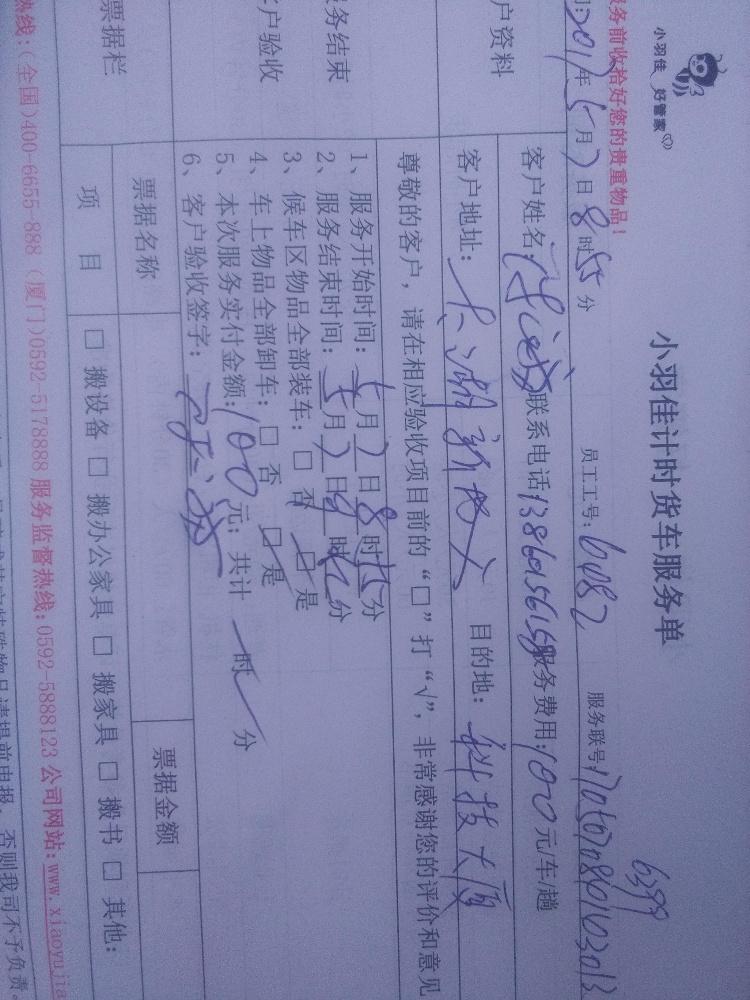 小羽佳 好管家
小羽佳计时货车服务单
务前收拾好您的贵重物品！
2017年5月7日8时55分 员工工号：6082 服务联号：
6399
户资料
客户姓名： 联系电话 服务费用：100元/车/趟
客户地址： 目的地：科技大厦
尊敬的客户，请在相应验收项目前的“□”打“√”，非常感谢您的评价和意见
务结束
户验收
1、服务开始时间：5月7日8时55分
2、服务结束时间：5月7日9时 分
3、候车区物品全部装车：□ 否 □ 是
4、车上物品全部卸车：□ 否 □ 是
5、本次服务实付金额：100元；共计 时 分
6、客户验收签字：
票据栏
票据名称 票据金额
项 目 □ 搬设备 □ 搬办公家具 □ 搬家具 □ 搬书 □ 其他：
热线：(全国)400-6655-888 (厦门)0592-5178888 服务监督热线：0592-5888123 公司网站：www.xiaoyujia
物品请提前申报，否则我司不予负责。